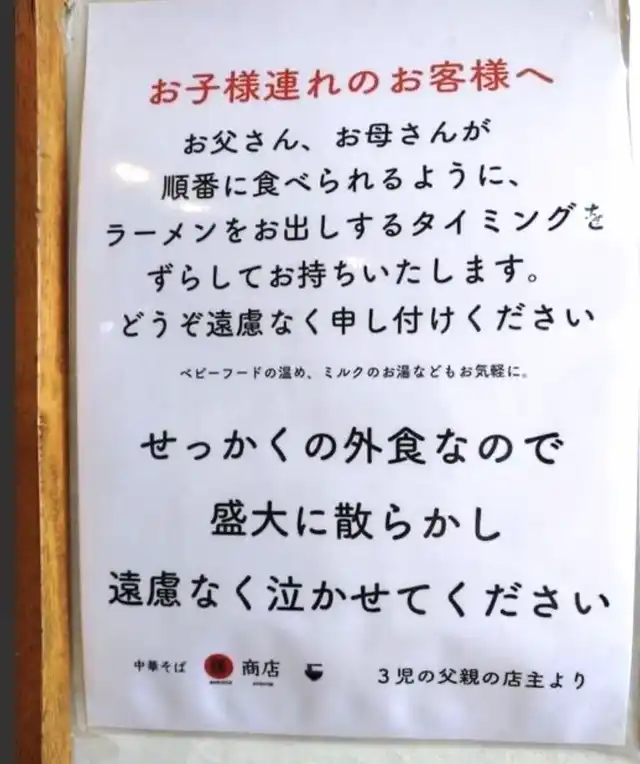 お子様連れのお客様へ
お父さん、お母さんが
順番に食べられるように、
ラーメンをお出しするタイミングを
ずらしてお持ちいたします。
どうぞ遠慮なく申し付けください
ベビーフードの温め、ミルクのお湯などもお気軽に。
せっかくの外食なので
盛大に散らかし
遠慮なく泣かせてください
中華そば 商店
3児の父親の店主より